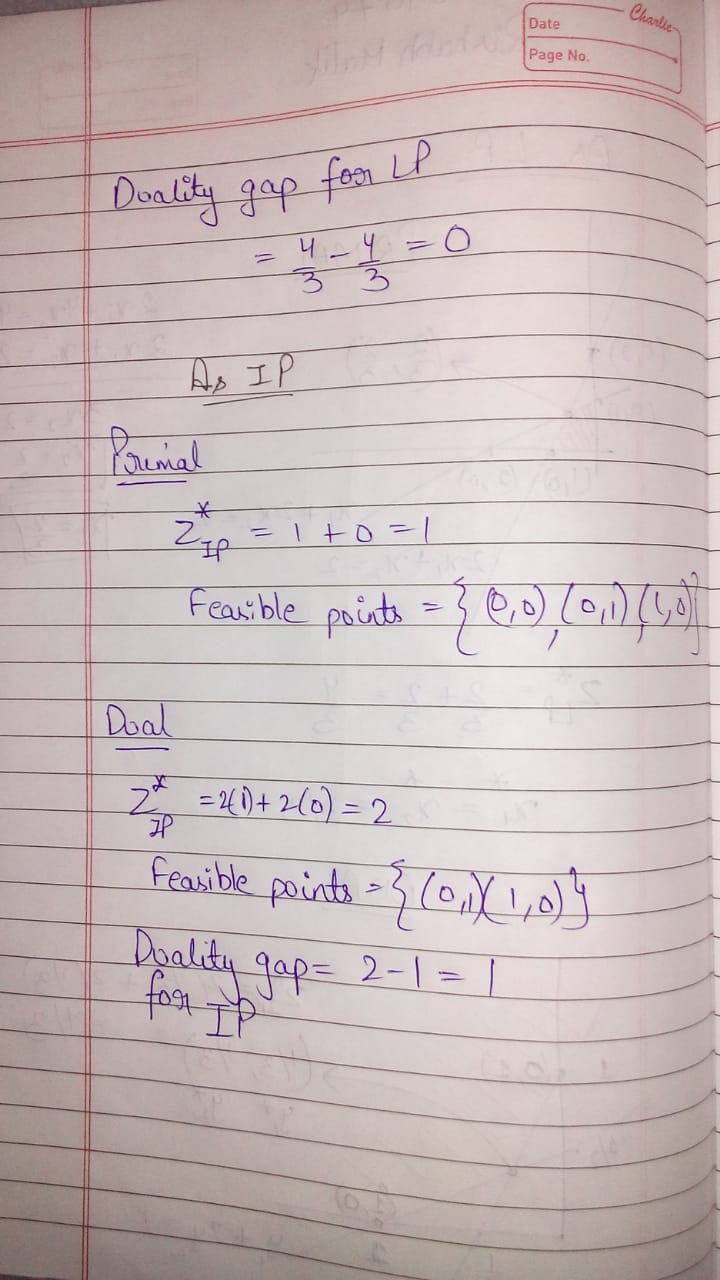 Charlie
Date
Page No.
Duality gap for LP
= 4/3 - 4/3 = 0
As IP
Primal
Z*IP = 1 + 0 = 1
Feasible points = { (0,0), (0,1), (1,0) }
Dual
Z*IP = 2(1) + 2(0) = 2
Feasible points = { (0,1) (1,0) }
Duality gap = 2 - 1 = 1
for IP